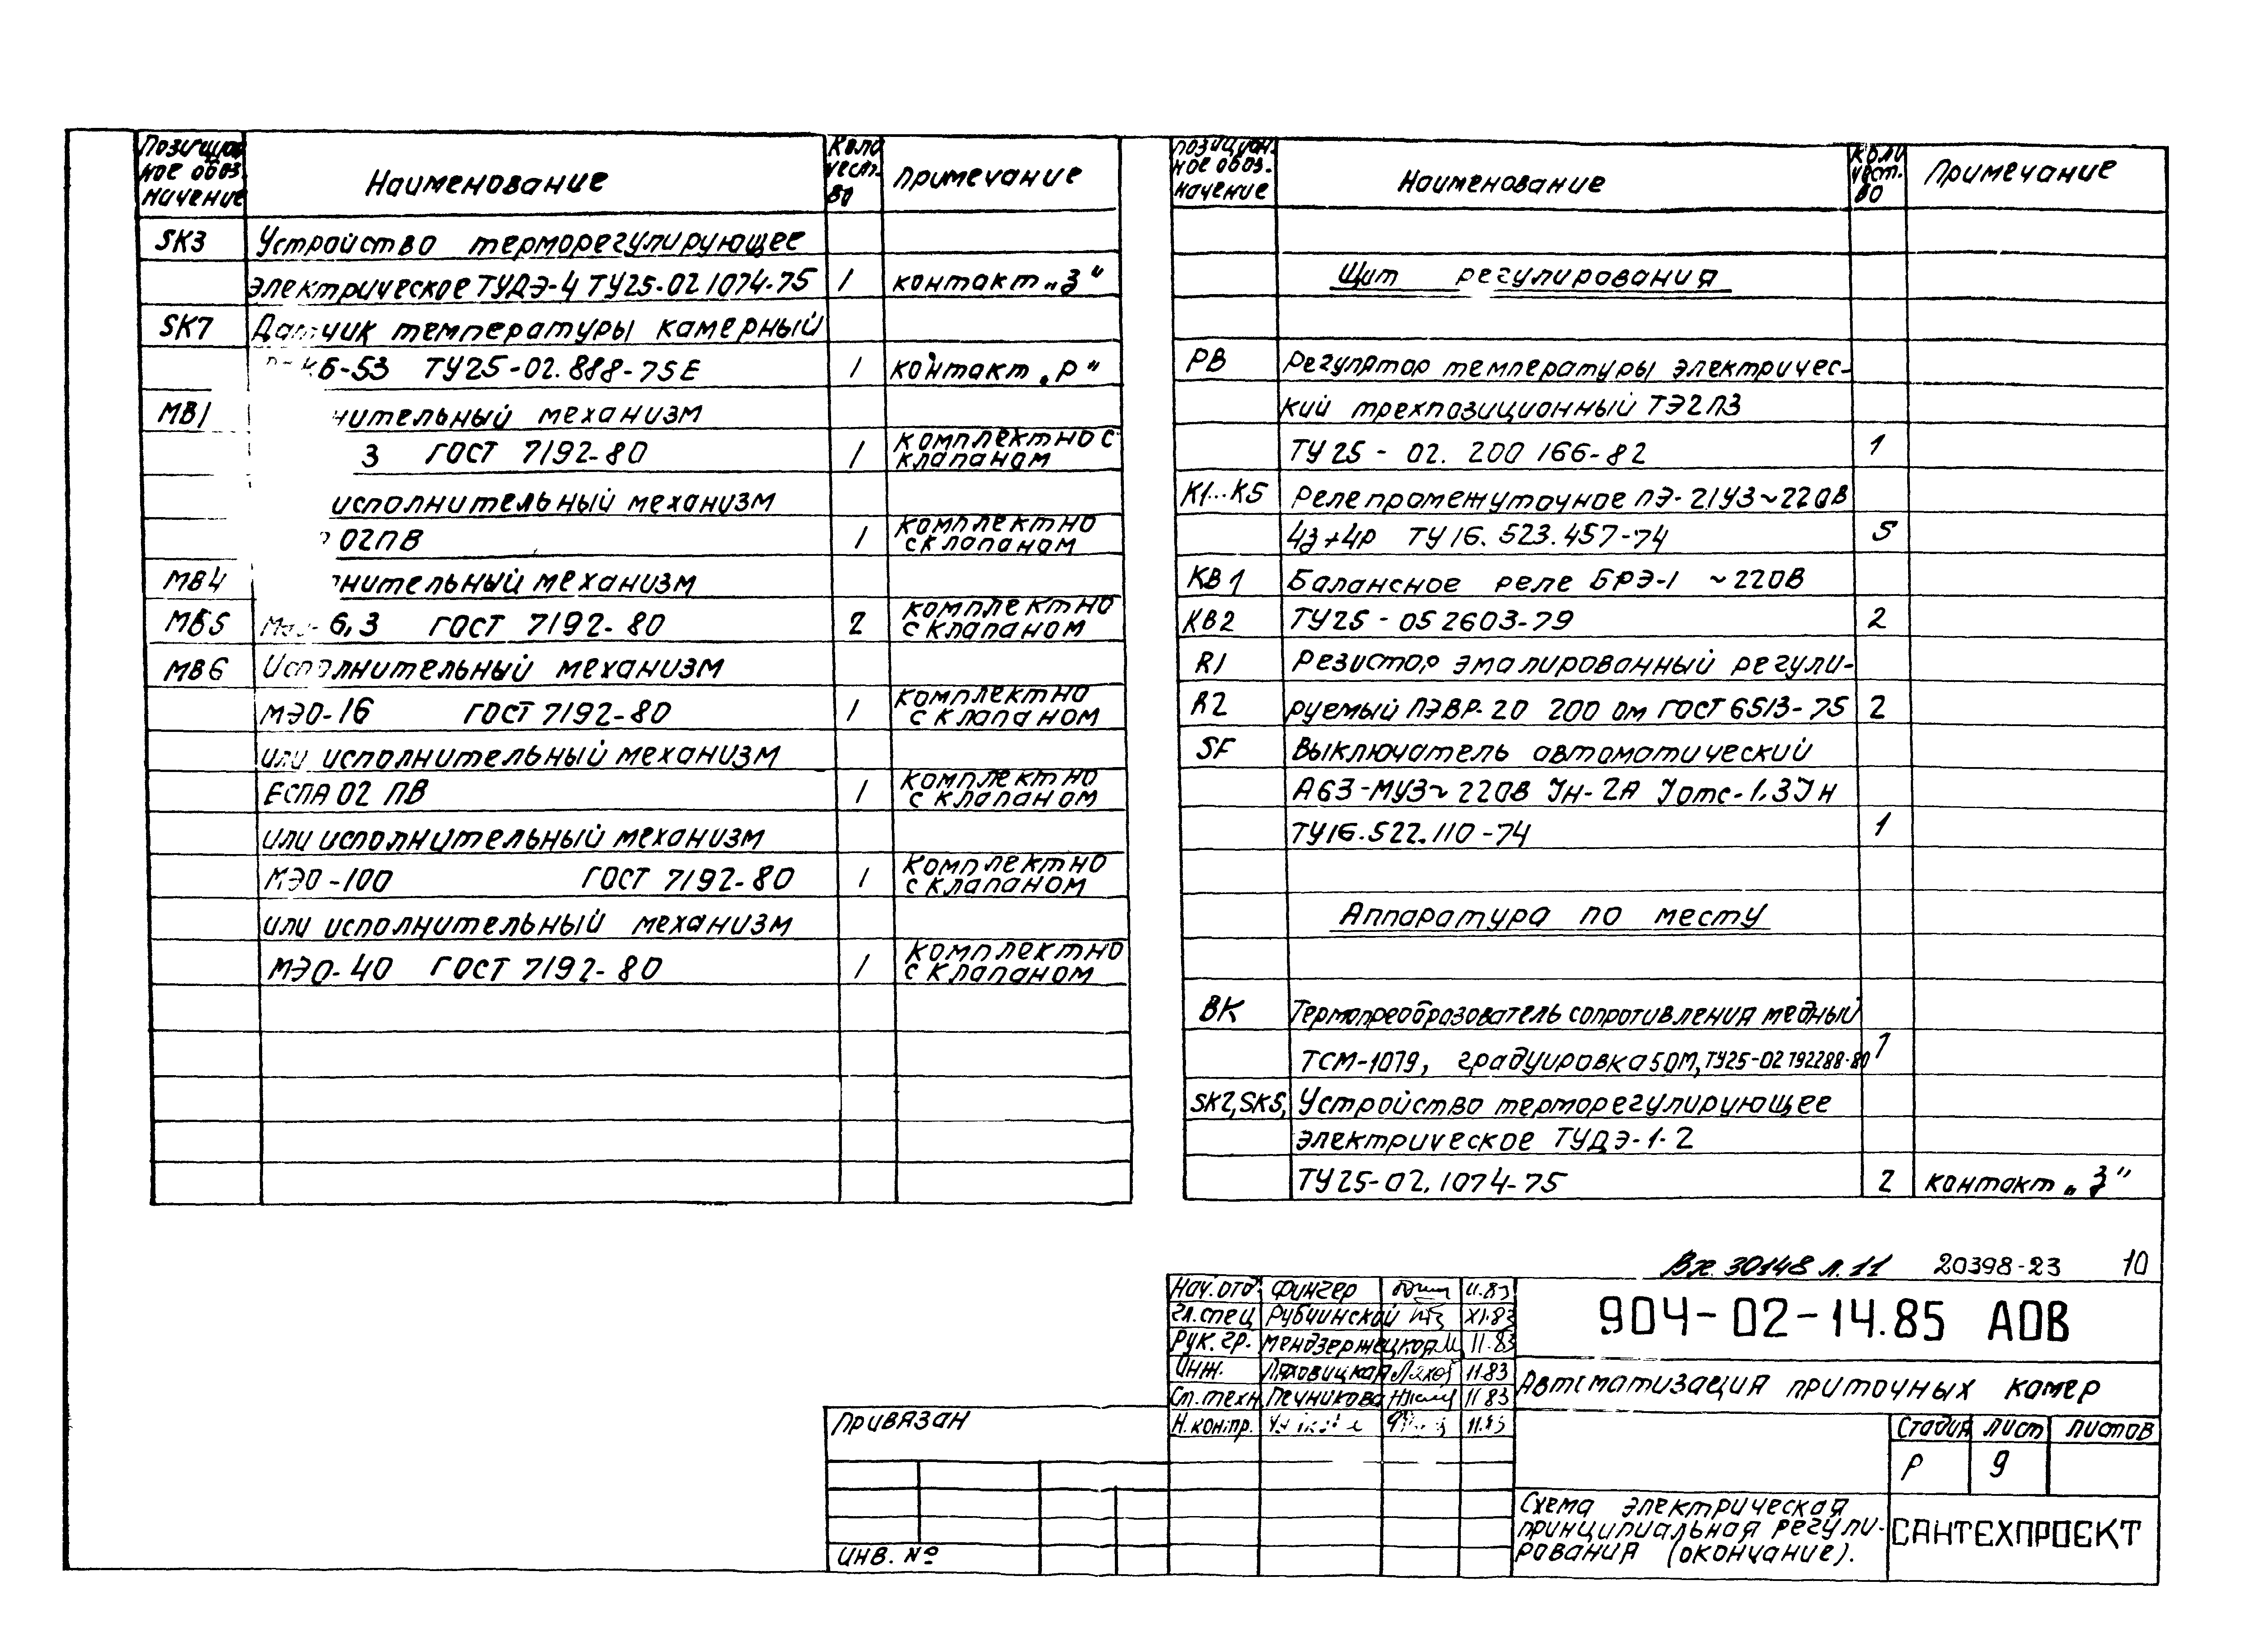 Позицион
ное обоз.
начение
Наименование
Коли
чест.
во
Примечание
SK3 Устройство терморегулирующее
электрическое ТУДЭ-4 ТУ25-02 1074-75 1 контакт „З"
SK7 Датчик температуры камерный
КБ-53 ТУ25-02.888-75Е 1 контакт „Р"
МВ1 нительный механизм
3 ГОСТ 7192-80 1 комплектно с
клапаном
исполнительный механизм
02ПВ 1 комплектно
с клапаном
МВ4 нительный механизм
МВ5 6,3 ГОСТ 7192-80 2 комплектно
с клапаном
МВ6 Исполнительный механизм
МЭО-16 ГОСТ 7192-80 1 комплектно
с клапаном
или исполнительный механизм
ЕСПА 02 ПВ 1 комплектно
с клапаном
или исполнительный механизм
МЭО-100 ГОСТ 7192-80 1 комплектно
с клапаном
или исполнительный механизм
МЭО-40 ГОСТ 7192-80 1 комплектно
с клапаном
позицион.
ное обоз.
начение
Наименование
Коли
чест.
во
Примечание
Щит регулирования
РВ Регулятор температуры электричес-
кий трехпозиционный ТЭ2П3
ТУ 25 - 02. 200 166-82 1
К1...К5 Реле промежуточное ПЭ-21У3~220В
4з+4р ТУ16.523.457-74 5
КВ1 Балансное реле БРЭ-1 ~220В
КВ2 ТУ25-05 2603-79 2
R1 Резистор эмалированный регули-
R2 руемый ПЭВР-20 200 Ом ГОСТ 6513-75 2
SF Выключатель автоматический
А63-МУ3~220В Iн-2А Iотс-1.3Iн
ТУ16.522.110-74 1
Аппаратура по месту
ВК Термопреобразователь сопротивления медный
ТСМ-1079, градуировка 50М, ТУ25-02 792288-80 1
SK2, SK5, Устройство терморегулирующее
электрическое ТУДЭ-1-2
ТУ25-02.1074-75 2 контакт „З"
Вх. 30148 л.11 20398-23 10
Нач. отд. Фингер 11.83
Гл. спец Рубчинский XI.83
Рук. гр. Мендзержецкая 11.83
Инж. Ляховицкая 11.83
Ст. техн. Печникова 11 83
Н. контр. 11.83
904-02-14.85 АОВ
Автоматизация приточных камер
Стадия Лист Листов
Р 9
Схема электрическая
принципиальная регули-
рования (окончание).
САНТЕХПРОЕКТ
Привязан
ИНВ. №